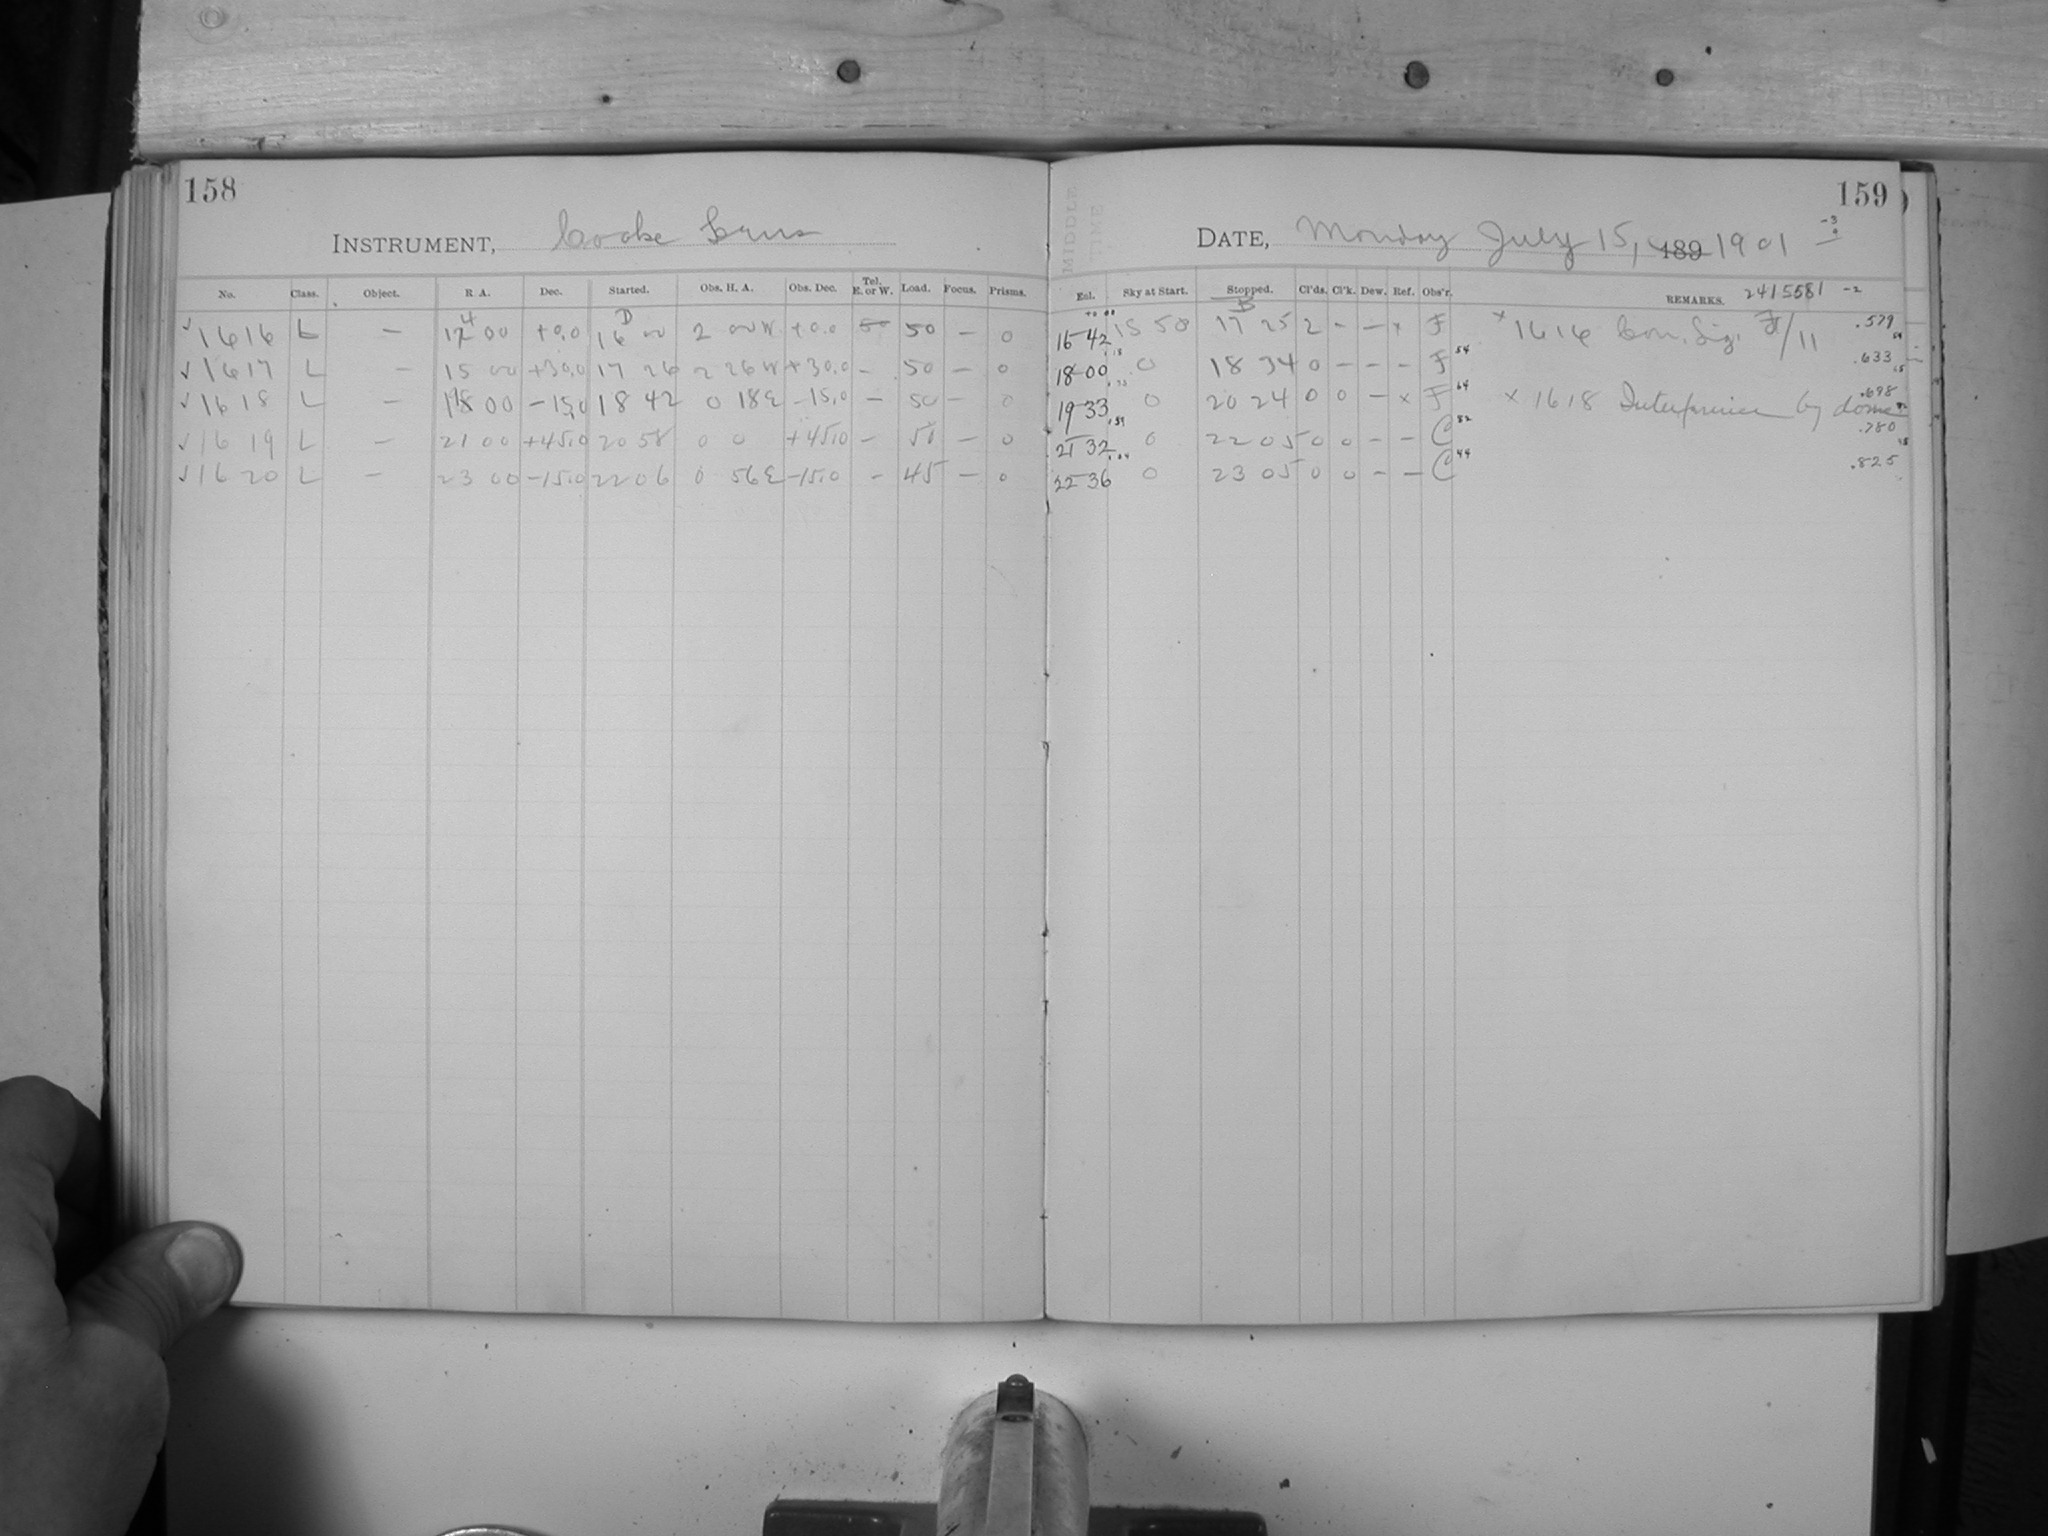 158
INSTRUMENT, Cooke Lens
No. Class. Object. R A. Dec. Started. Obs. H. A. Obs. Dec. Tel. E. or W. Load. Focus. Prisms.
✓ 1616 L — 14 00 +0,0 16 00 2 00 W +0.0 50 — 0
✓ 1617 L — 15 00 +30,0 17 26 2 26 W +30,0 — 50 — 0
✓ 1618 L — 18 00 -15,0 18 42 0 18 E -15,0 — 50 — 0
✓ 16 19 L — 21 00 +45,0 20 58 0 0 +45,0 — 50 — 0
✓ 16 20 L — 23 00 -15,0 22 06 0 56 E -15,0 - 45 — 0
MIDDLE
LINE
159
DATE, Monday July 15, 189 1901
-3
Sky at Start. Stopped. Cl'ds. Cl'k. Dew. Ref. Obs'r. REMARKS. 2415581 -2
16 42 15 50 17 25 2 - — x F x 1616 Con. Sig. F/11 .579
18 00 0 18 34 0 - - - F 54 .633
19 33 0 20 24 0 0 — x F 64 x 1618 Interference by dome .698
21 32 0 22 05 0 0 - - C 82 .780
22 36 0 23 05 0 0 - — C 44 .825